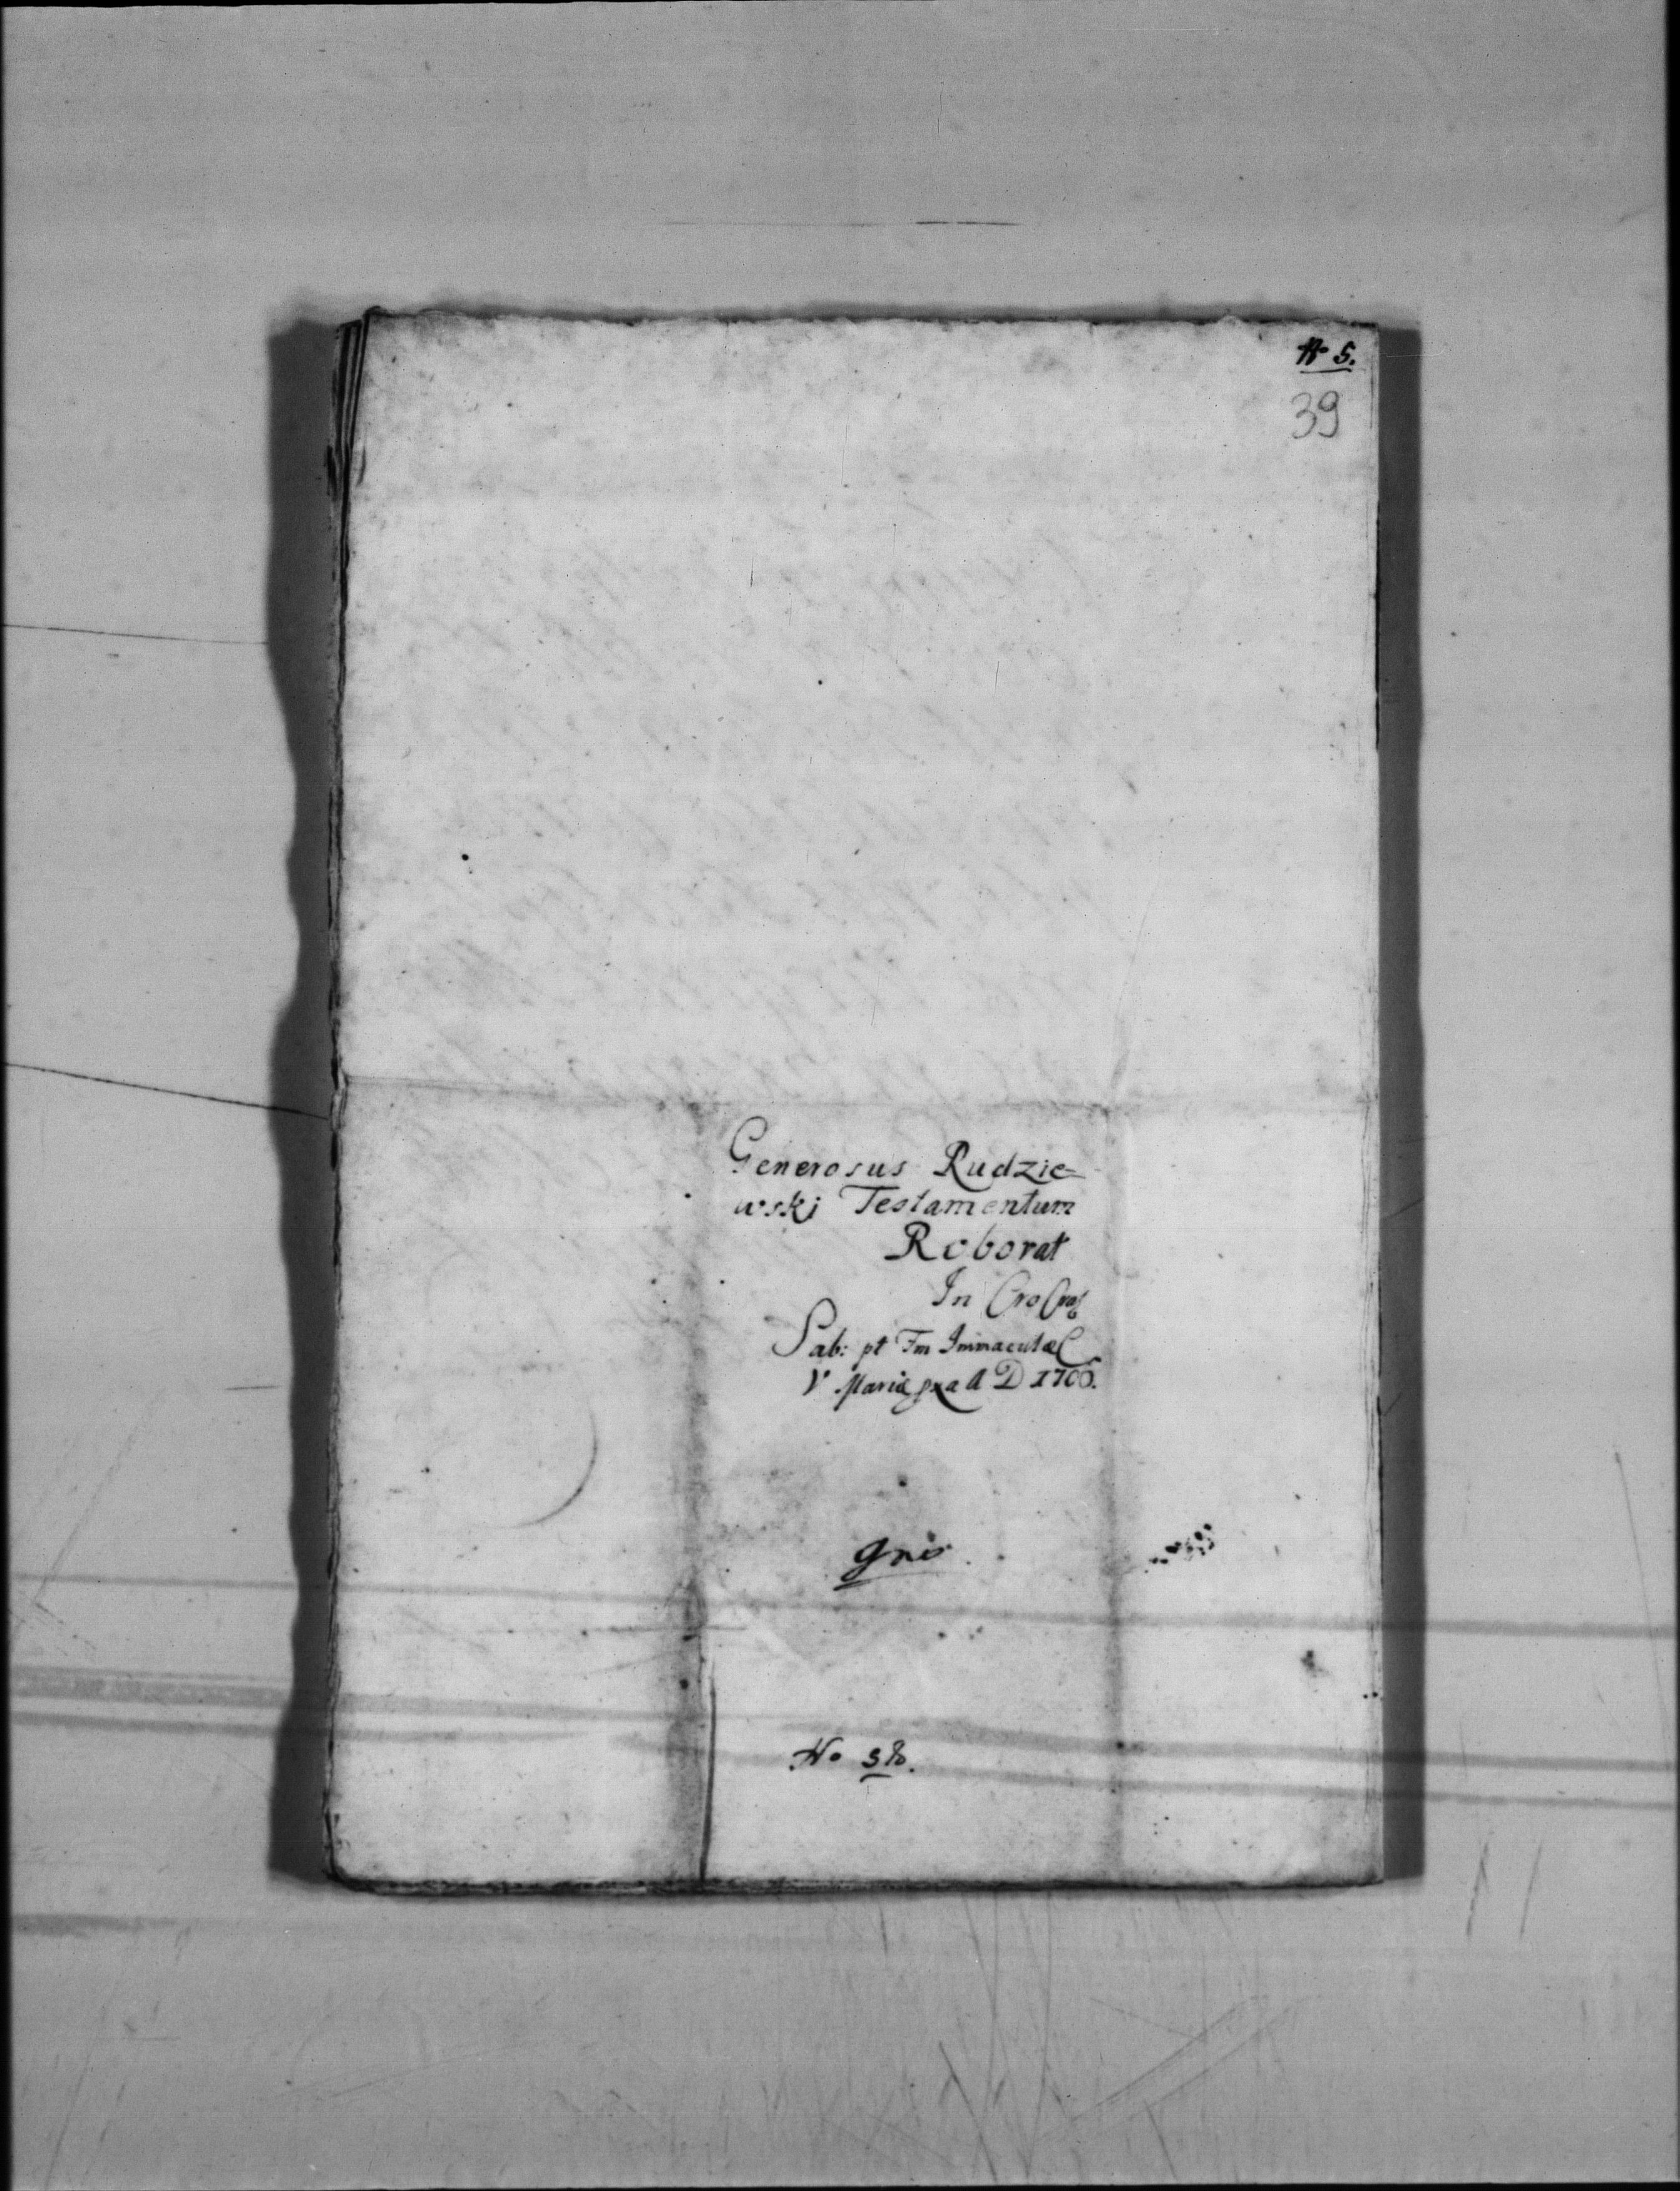 No 5.
39
Generosus Rudzie=
wski Testamentum
Roborat
In Cro Crac
Sab: pt Fm Immacul C
V Mariæ A D 1706.
No 38.